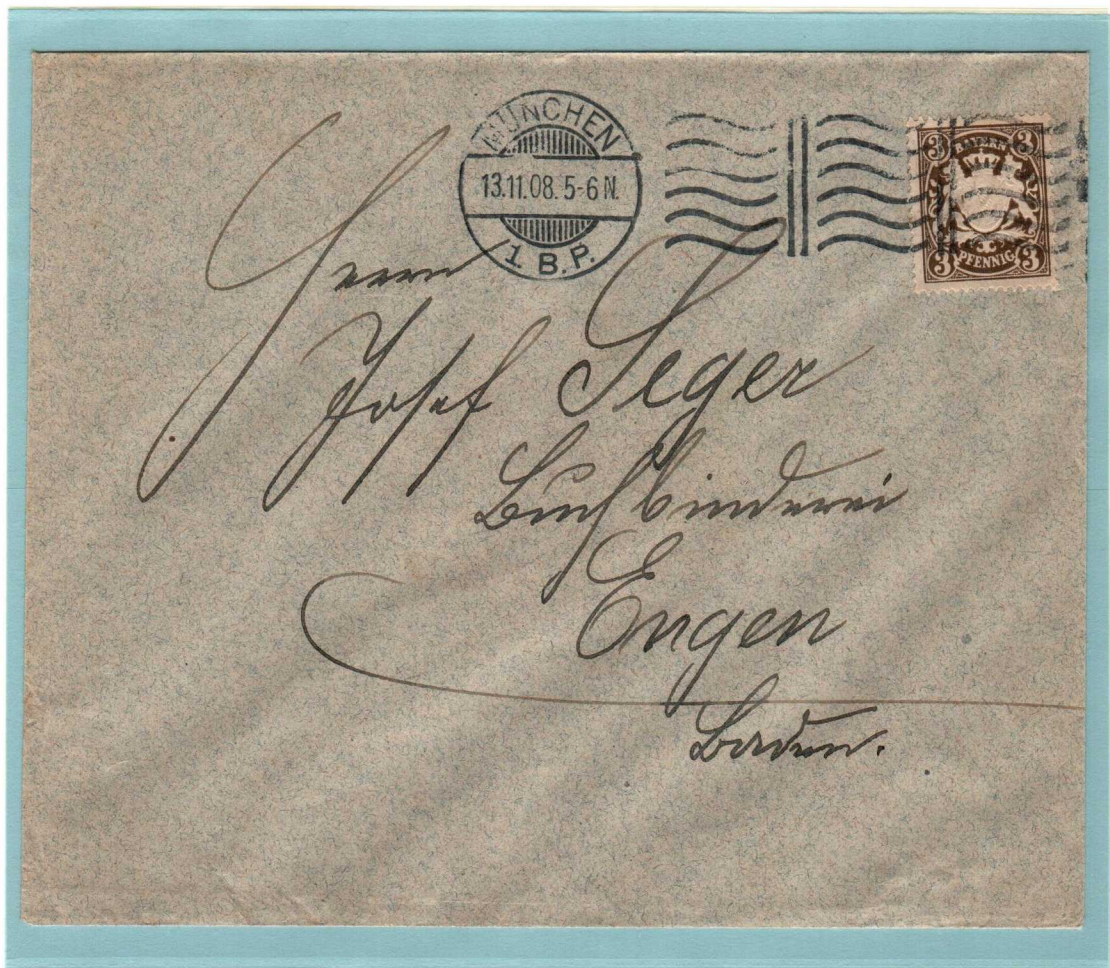 MÜNCHEN
13.11.08. 5-6 N.
1. B. P.
3 3
BAYERN
3 PFENNIG 3
Herrn
Josef Seger
Buchbinderei
Engen
Baden.